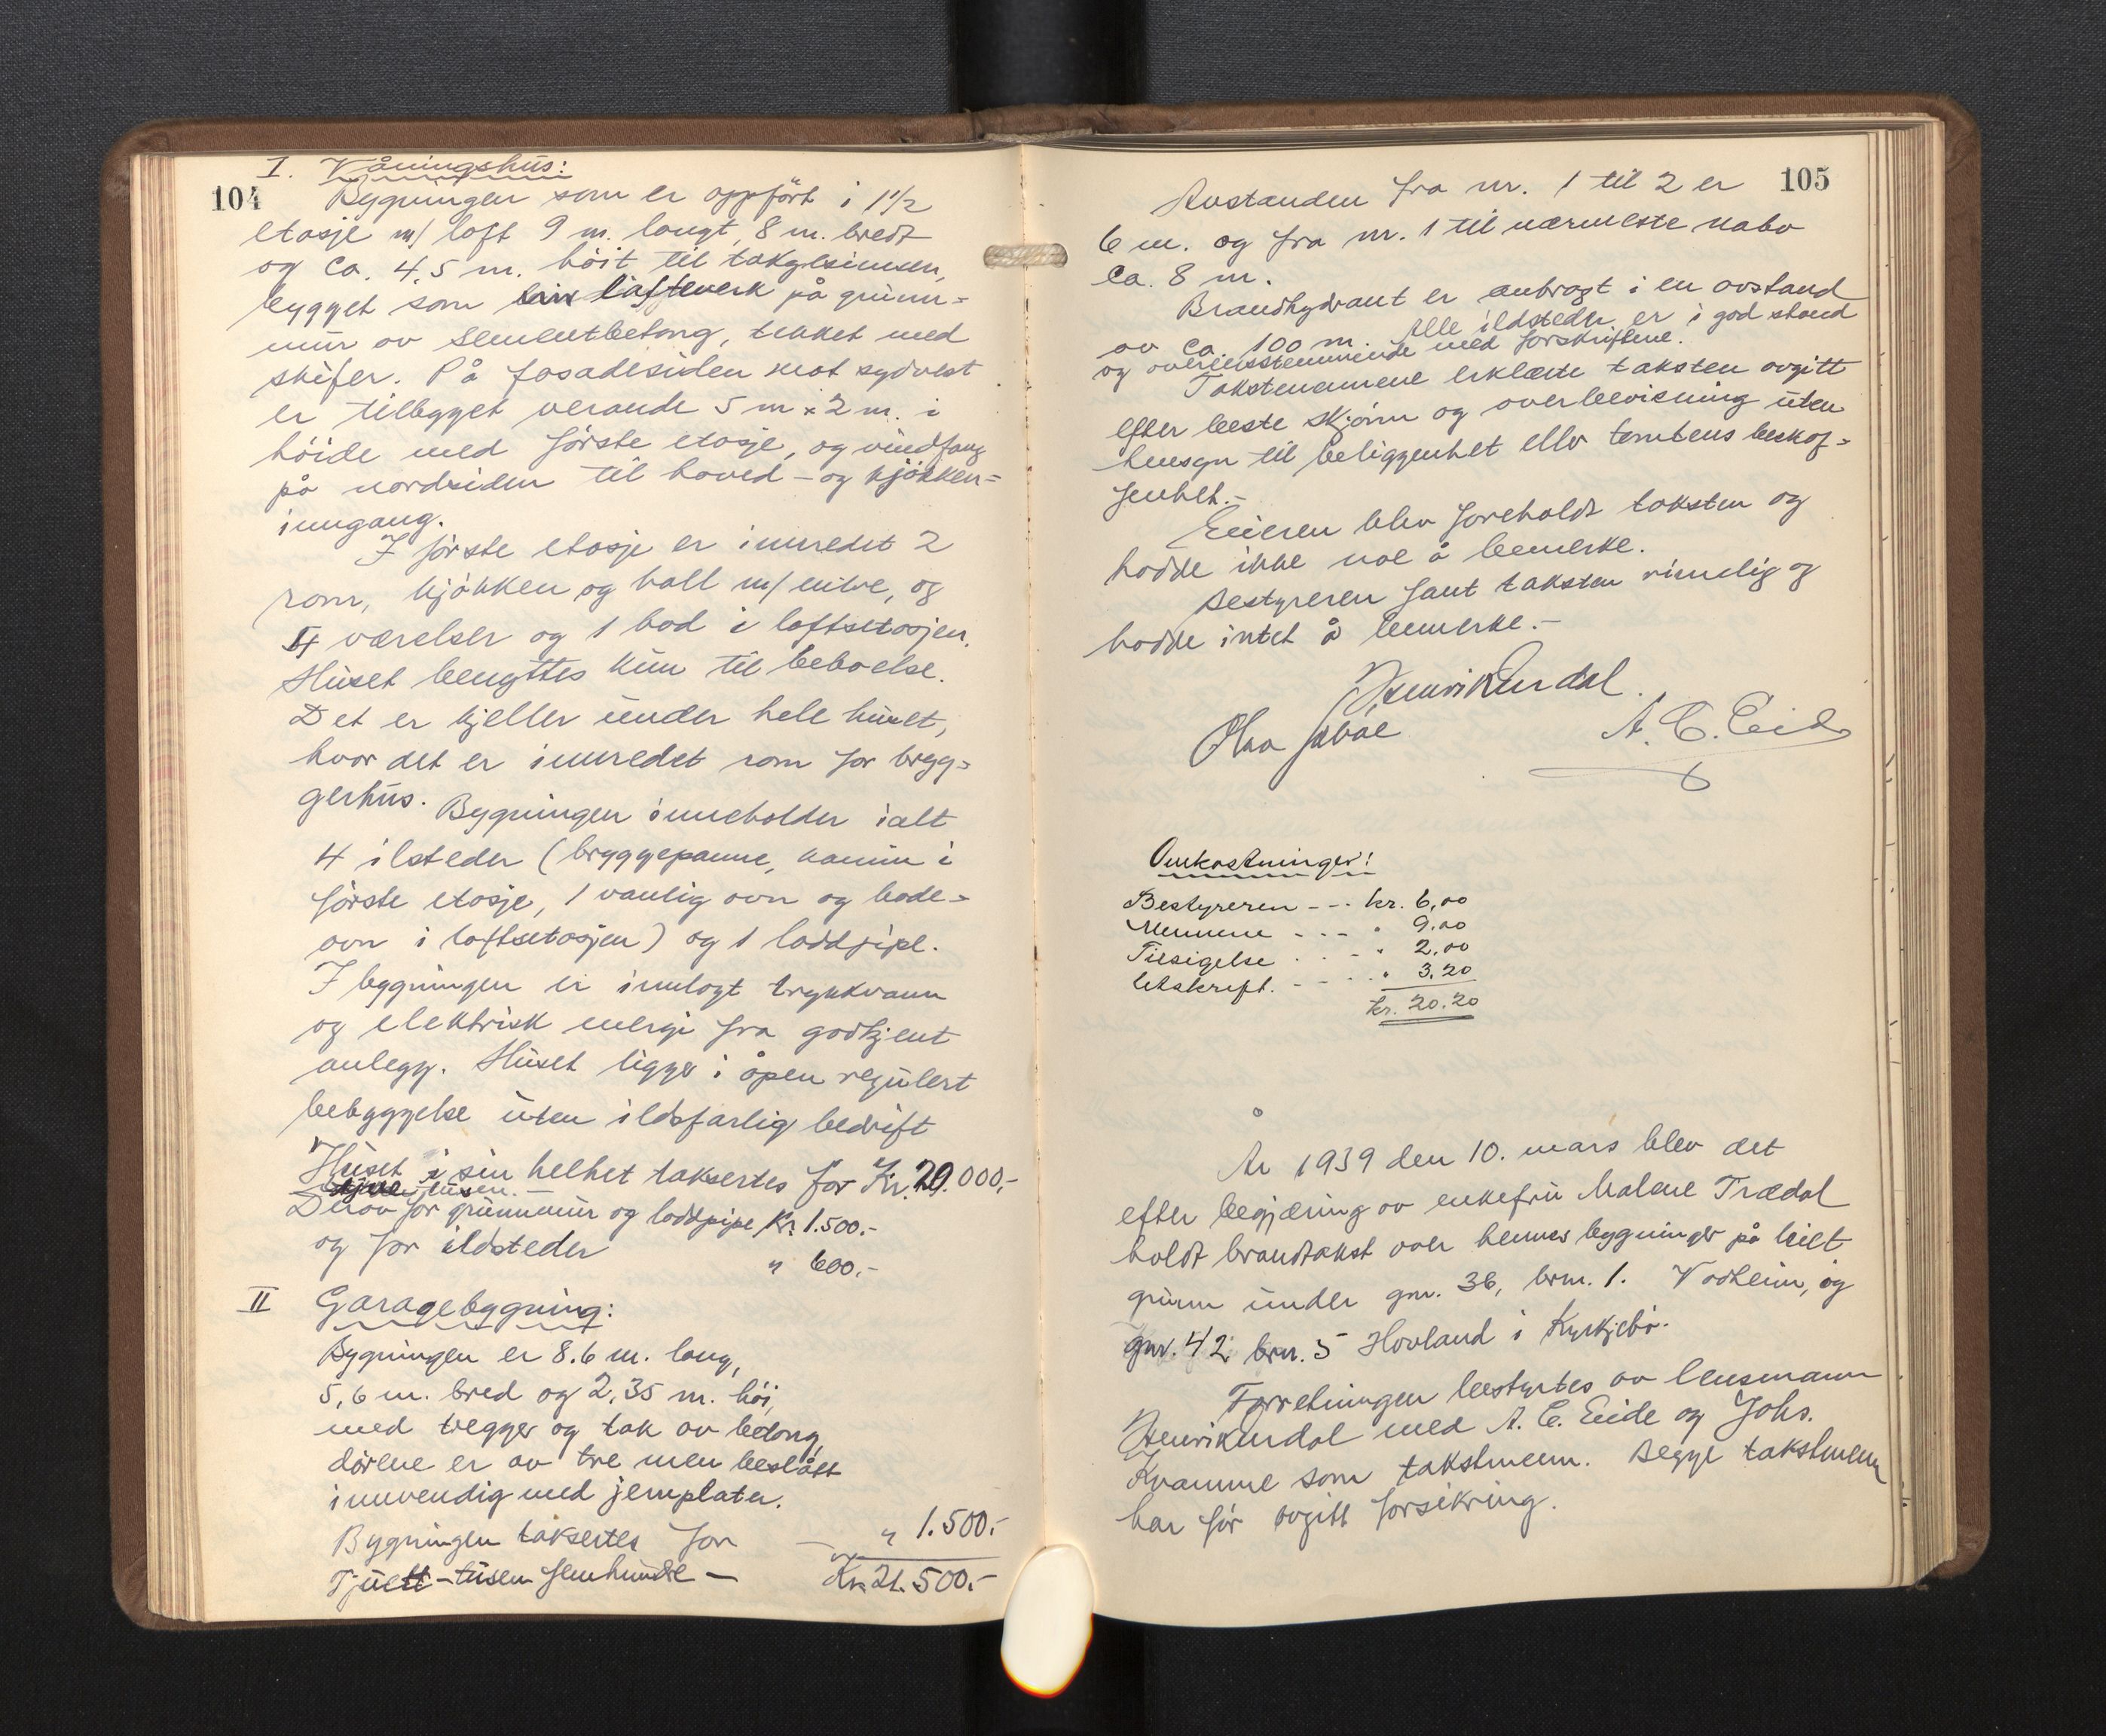 104
I. Våningshus:
Bygningen som er oppført i 1½
etasje m/ loft 9 m. langt, 8 m. bredt
og ca. 4,5 m. höit til takgesimsen,
bygget som lafteverk på grunn-
mur av sementbetong, tekket med
skifer. På fasadesiden mot sydvest
er tilbygget verande 5 m x 2 m. i
höide med förste etasje, og vindfang
på nordsiden til hoved- og kjökken-
inngang.
I förste etasje er innredet 2
rom, kjökken og hall m/ entre, og
4 værelser og 1 bod i loftsetasjen.
Huset benyttes kun til beboelse.
Det er kjeller under hele huset,
hvor det er innredet rom for brygg-
gerhus. Bygningen inneholder ialt
4 ilsteder (bryggepanne, kamin i
förste etasje, 1 vanlig ovn og bade-
ovn i loftsetasjen) og 1 loddpipe.
I bygningen er innlagt trykkvann
og elektrisk energi fra godkjent
anlegg. Huset ligger i åpen regulert
bebyggelse uten ildsfarlig bedrift
Huset i sin helhet taksertes for Kr. 20.000,-
tjue tusen.-
Derav for grunnmur og loddpipe Kr. 1.500.-
og for ildsteder " 600.-
II Garagebygning:
Bygningen er 8.6 m. lang,
5,6 m. bred og 2,35 m. höi,
med vegger og tak av betong,
dörene er av tre men beslått
innvendig med jernplater.
Bygningen taksertes for — " 1.500.-
Tjuett-tusen femhundre — Kr. 21.500.-
105
Avstanden fra nr. 1 til 2 er
6 m. og fra nr. 1 til nærmeste nabo
ca. 8 m.
Brandhydrant er anbragt i en avstand
av ca. 100 m. Alle ildsteder er i god stand
og overensstemmende med forskriftene.
Takstmennene erklærte taksten avgitt
efter beste skjönn og overbevisning uten
hensyn til beliggenhet eller tomtens beskaf-
fenhet.-
Eieren blev foreholdt taksten og
hadde ikke noe å bemerke.
Bestyreren fant taksten rimelig og
hadde intet å bemerke.-
Henrikurdal.
Olav A. E. Eide
Omkostninger:
Bestyreren - - - kr. 6,00
Mennene - - - " 9.00
Tilsigelse . . - " 2,00
Utskrift. - - . . " 3.20
kr. 20.20
År 1939 den 10. mars blev det
efter begjæring av enkefru Malene Trædal
holdt brandtakst over hennes bygninger på leiet
grunn under gnr. 36, brnr. 1. Vadheim, og
gnr. 42 brnr. 5 Hovland i Kyrkjebö.
Forretningen bestyrtes av lensmann
Henrikurdal med A. E. Eide og Johs.
Kvamme som takstmenn. Begge takstmenn
har för avgitt forsikring.